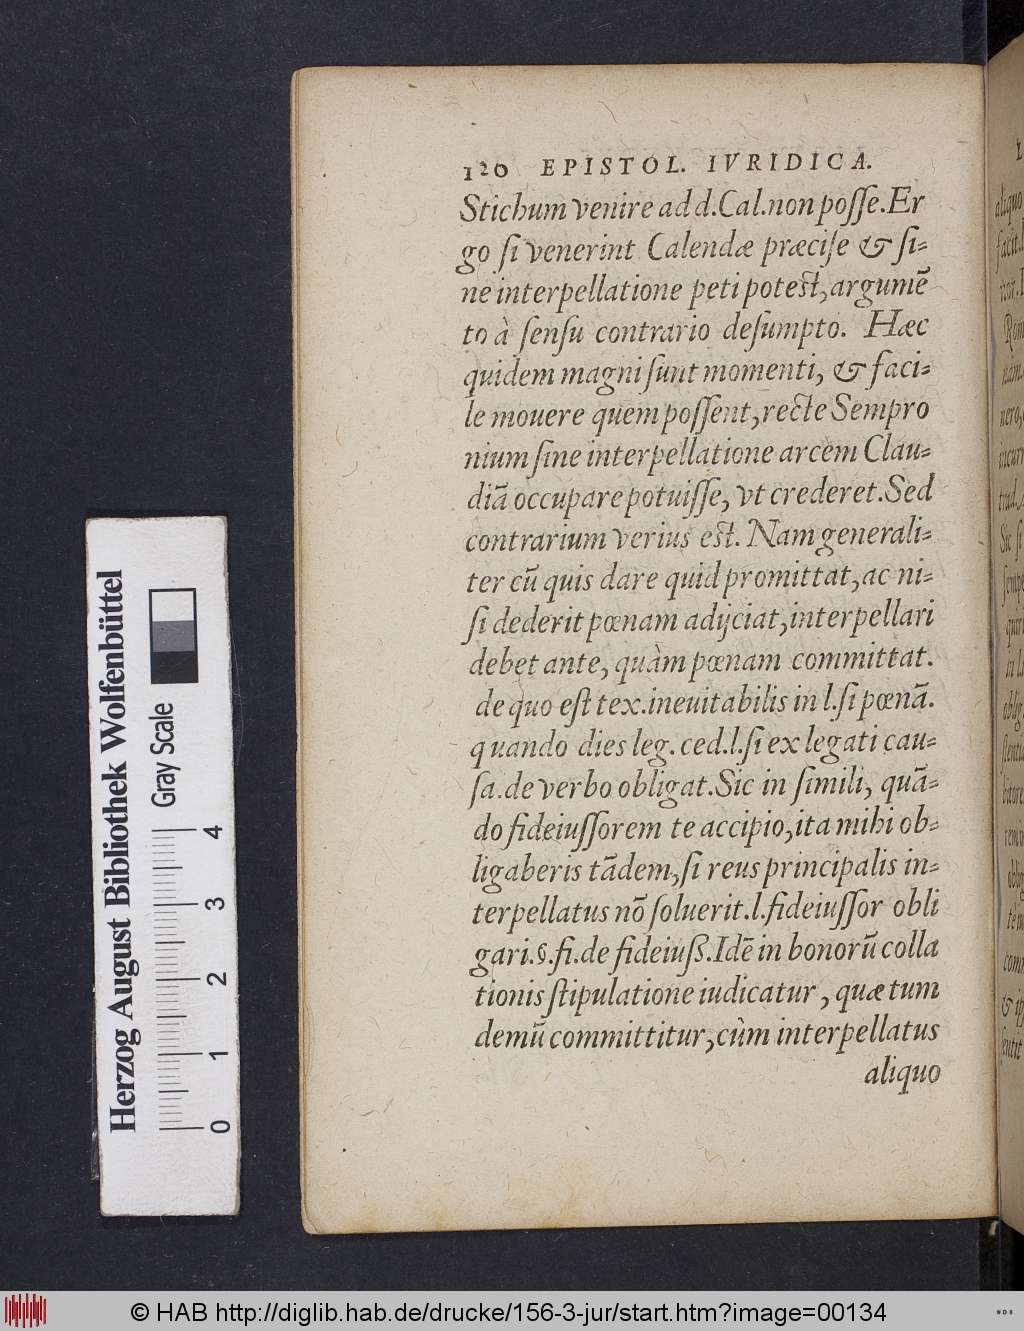 120 EPISTOL. IVRIDICA.
Stichum venire ad d.Cal.non poſſe.Er
go ſi venerint Calendæ præciſe & ſi-
ne interpellatione peti poteſt,argumē
to à ſenſu contrario deſumpto. Hæc
quidem magni ſunt momenti, & faci-
le mouere quem poſſent,recte Sempro
nium ſine interpellatione arcem Clau-
diā occupare potuiſſe, vt crederet.Sed
contrarium verius eſt. Nam generali-
ter cū quis dare quid promittat,ac ni-
ſi dederit pœnam adijciat,interpellari
debet ante, quàm pœnam committat.
de quo eſt tex.ineuitabilis in l.ſi pœnā.
quando dies leg. ced.l.ſi ex legati cau-
ſa.de verbo obligat.Sic in ſimili, quā-
do fideiuſſorem te accipio,ita mihi ob-
ligaberis tādem,ſi reus principalis in-
terpellatus nō ſoluerit.l.fideiuſſor obli
gari.§.fi.de fideiuß.Idē in bonorū colla
tionis ſtipulatione iudicatur, quæ tum
demū committitur,cùm interpellatus
aliquo
Herzog August Bibliothek Wolfenbüttel
Gray Scale
0 1 2 3 4
© HAB http://diglib.hab.de/drucke/156-3-jur/start.htm?image=00134